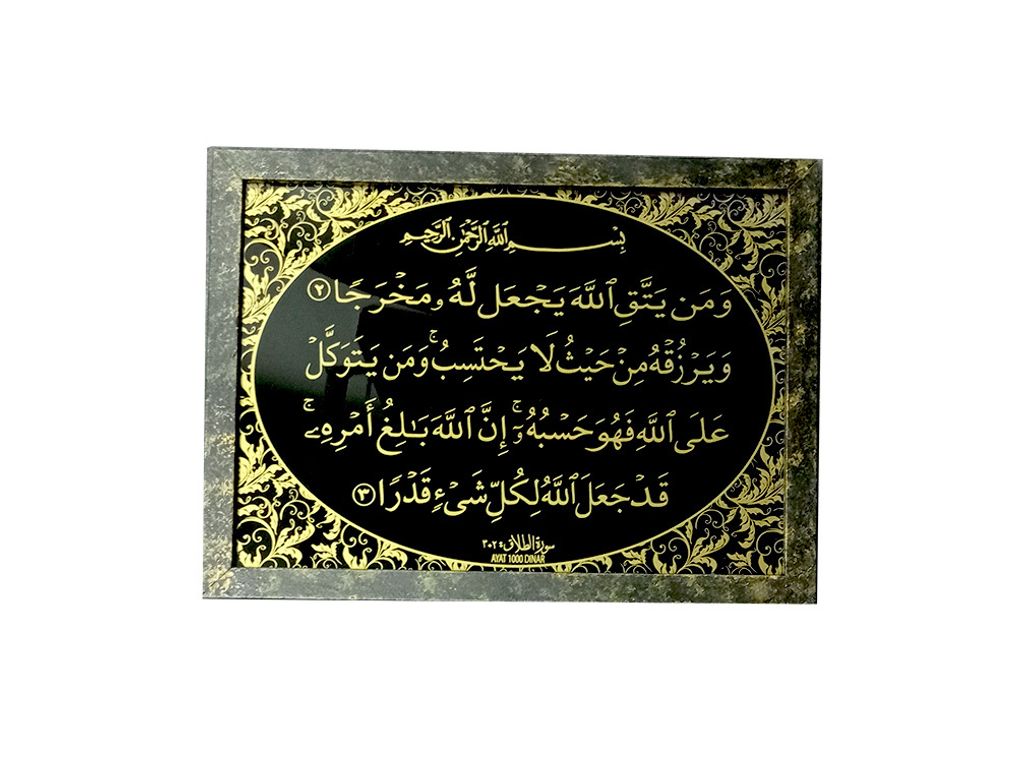 بِسْمِ اللَّهِ الرَّحْمَٰنِ الرَّحِيمِ
وَمَن يَتَّقِ ٱللَّهَ يَجْعَل لَّهُۥ مَخْرَجًا ٢
وَيَرْزُقْهُ مِنْ حَيْثُ لَا يَحْتَسِبُ ۚ وَمَن يَتَوَكَّلْ
عَلَى ٱللَّهِ فَهُوَ حَسْبُهُۥٓ ۚ إِنَّ ٱللَّهَ بَـٰلِغُ أَمْرِهِۦ ۚ
قَدْ جَعَلَ ٱللَّهُ لِكُلِّ شَىْءٍ قَدْرًا ٣
سورة الطلاق: ٢،٣
AYAT 1000 DINAR